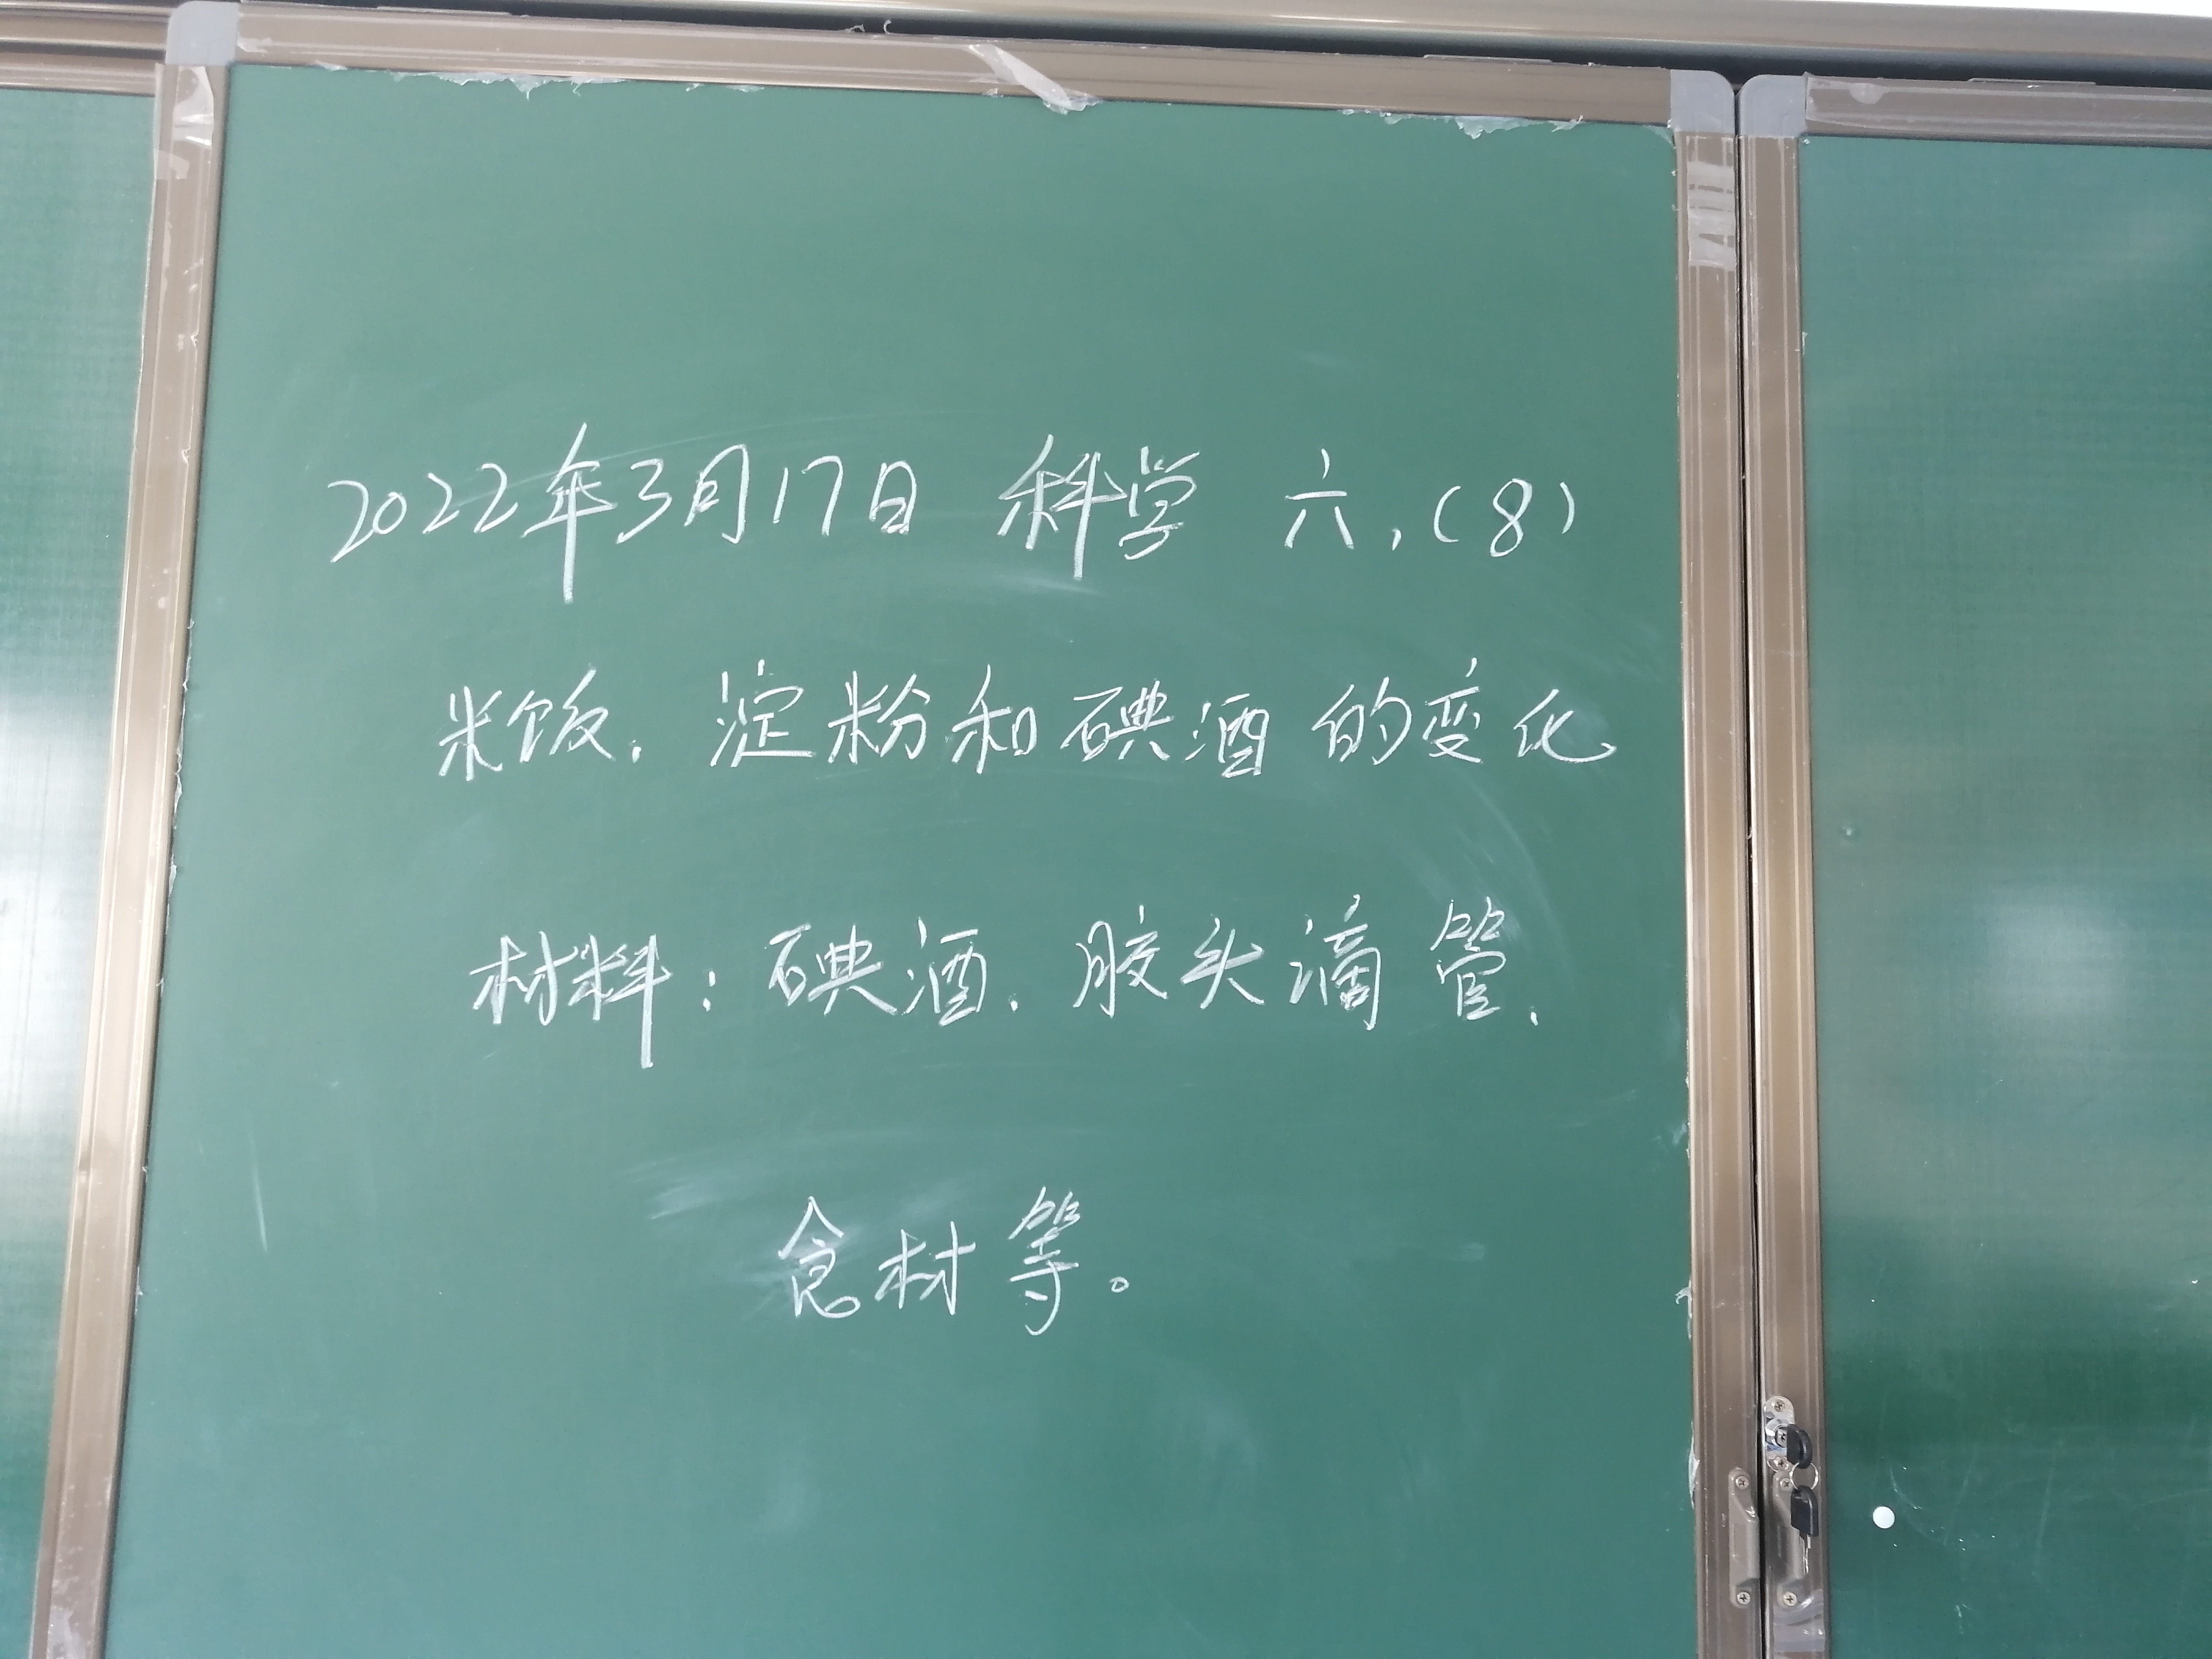 2022年3月17日 科学 六.(8)
米饭.淀粉和碘酒的变化
材料:碘酒.胶头滴管.
食材等。